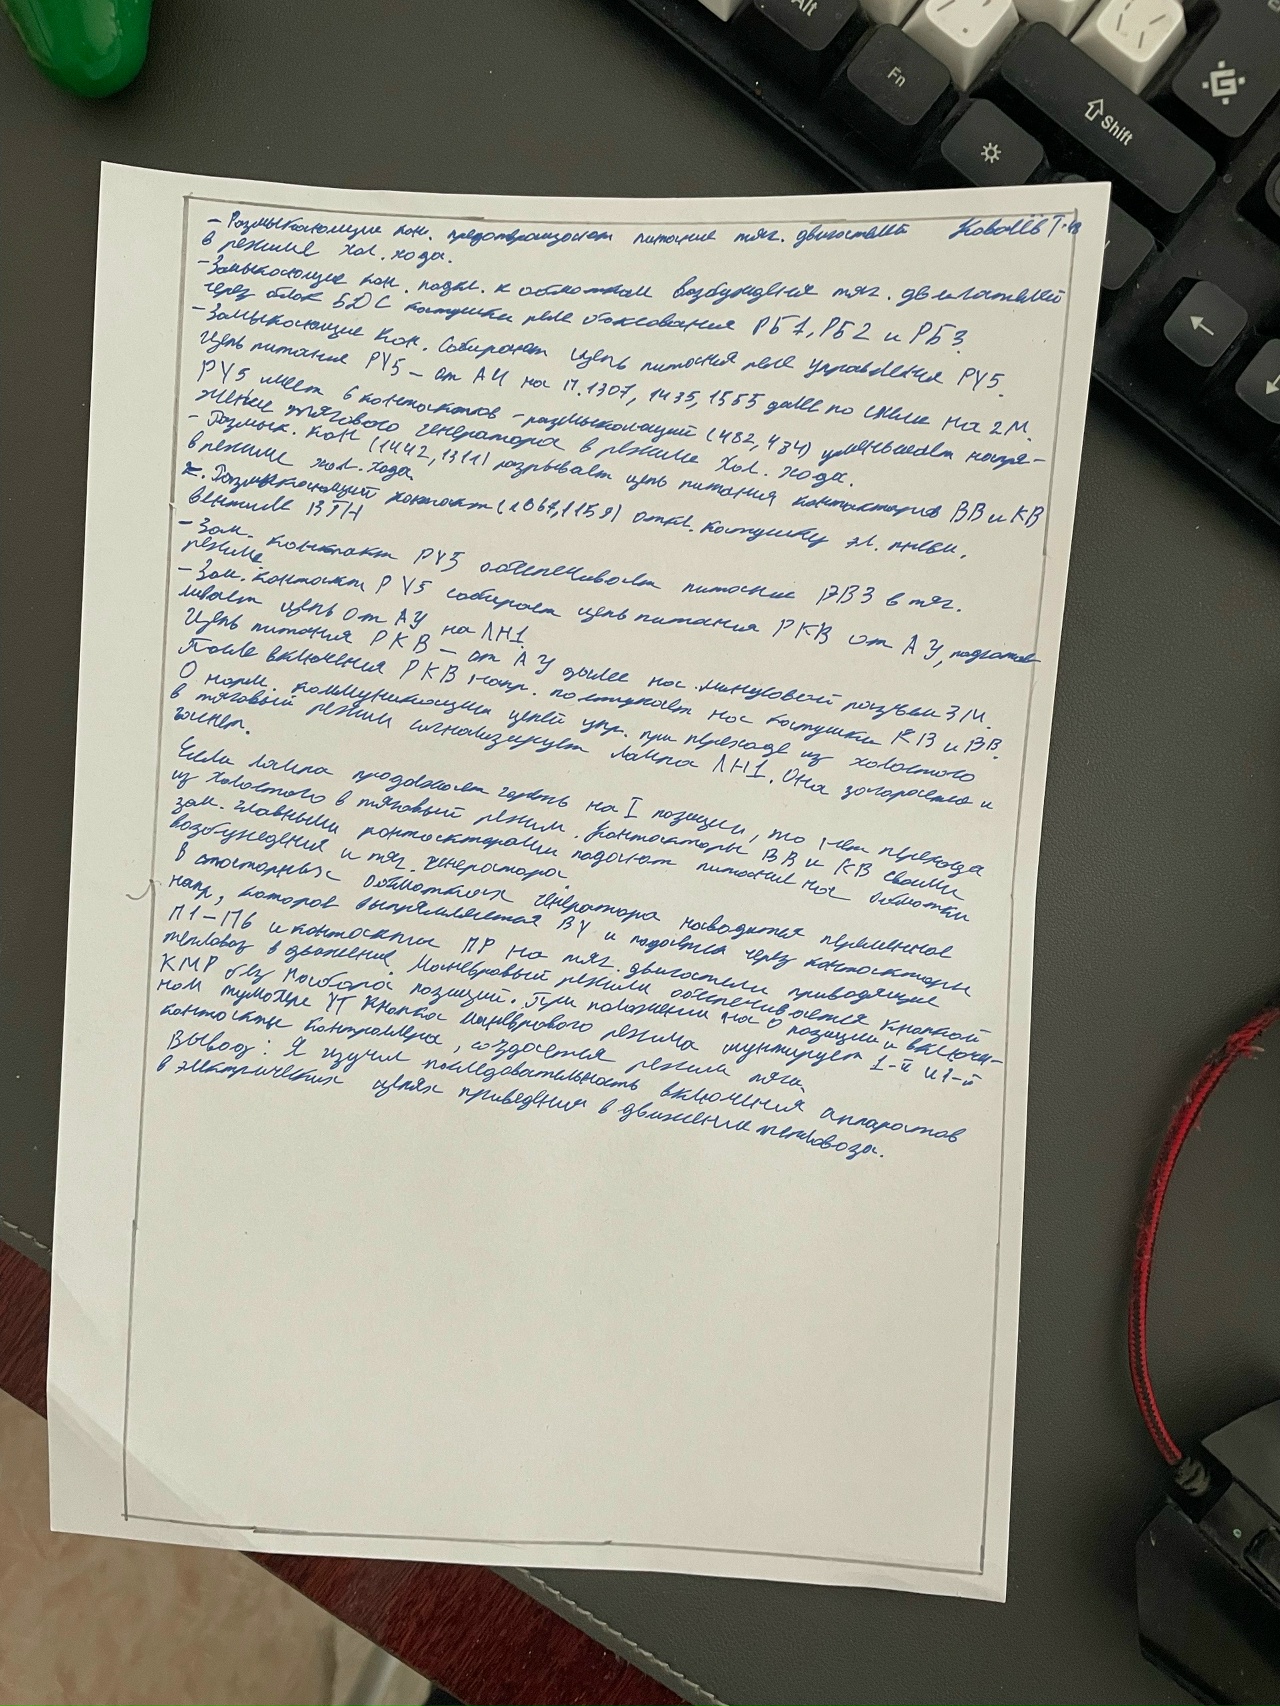 - Размыкающие кон. предотвращают питание тяг. двигателей
в режиме хол. хода.
- Замыкающие кон. подкл. к обмоткам возбуждения тяг. двигателей
через блок БДС катушки реле боксования РБ1, РБ2 и РБ3.
- Замыкающие кон. собирают цепь питания реле управления РУ5.
Цепь питания РУ5 - от АУ на п. 1307, 1435, 1555 далее по схеме на 2М.
РУ5 имеет 6 контактов - размыкающий (482, 484) уменьшает напря-
жение тягового генератора в режиме хол. хода.
- Размык. кон (1442, 1311) разрывает цепь питания контакторов ВВ и КВ
в режиме хол. хода.
Размыкающий контакт (1067, 1159) откл. катушку эл. пневм.
вентиля ВТН
- Зам. контакт РУ5 обеспечивает питание РВ3 в тяг.
режиме
- Зам. контакт РУ5 собирает цепь питания РКВ от АУ, подготав
ливает цепь от АУ на ЛН1.
Цепь питания РКВ - от АУ далее на минусовой разъем 3М.
После включения РКВ напр. поступает на катушки КВ и ВВ.
О норм. коммуникации цепей упр. при переходе из холостого
в тяговый режим сигнализирует лампа ЛН1. Она загорается и
гаснет.
Если лампа продолжает гореть на I позиции, то нет перехода
из холостого в тяговый режим. Контакторы ВВ и КВ своими
зам. главными контакторами подают питание на обмотки
возбуждения и тяг. генератора.
В статорных обмотках генератора наводится переменное
напр, которое выпрямляется ВУ и подается через контакторы
П1-П6 и контакты ПР на тяг. двигатели приводящие
тепловоз в движение. Маневровый режим обеспечивается кнопкой
КМР без набора позиций. При положении на 0 позиции и включен-
ном тумблере УТ кнопка маневрового режима шунтирует 1-й и 1-й
контакты контроллера, создается режим тяги.
Вывод: Я изучил последовательность включения аппаратов
в электрических цепях приведения в движение тепловоза.
Ковалёв Т-48
Alt
Fn
Shift